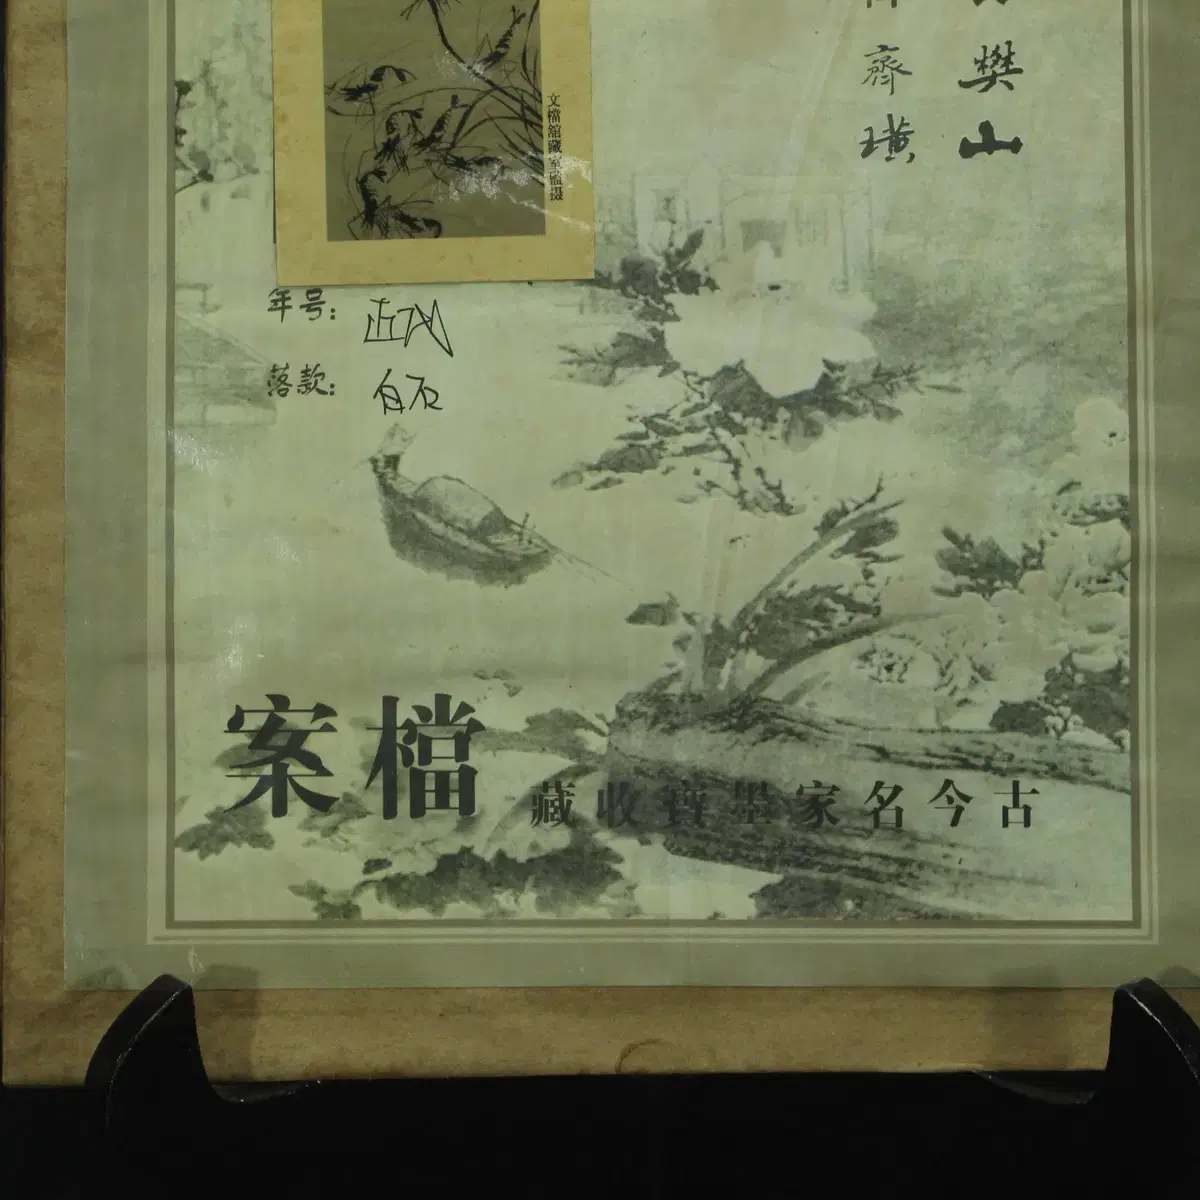 樊山
齊璜
文檔舘藏室監摄
年号：
落款：白石
古今名家墨寶收藏
檔案